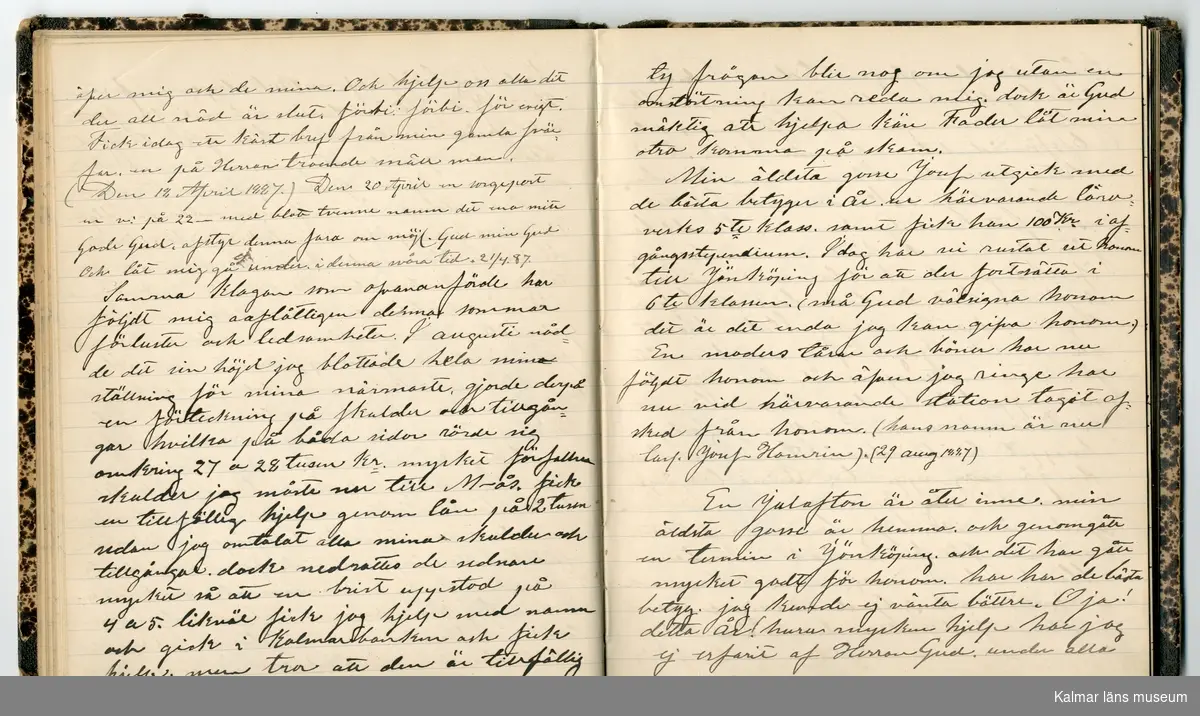 öfver mig och de mina. Och hjelpe oss alla dit
der all nöd är slut, förbi! förbi. för evigt.
Fick idag ett kärt bref från min gamla svär-
far. en på Herran troende mätt man.
(Den 12 April 1887.) Den 20 April en sorgepost
en vi på 22 - med blott tvenne namn det ena mitt
Gode Gud. afstyr denna fara om möjl. Gud min Gud
Och låt mig ej gå under i denna svåra tid. 21/4 87.
Samma klagan som ofvananförde har
följdt mig oaflåtligen denna sommar
förluster och ledsamheter. I augusti nåd-
de det sin höjd jag blottade hela min
ställning för mina närmaste, gjorde derpå
en förteckning på skulder och tillgån-
gar hvilka på båda sidor rörde sig
omkring 27 a 28 tusen kr. mycket förfallna
skulder jag måste nu till M-ås. fick
en tillfällig hjelp genom lån på 2 tusen
sedan jag omtalat alla mina skulder och
tillgångar. dock nedsattes de sednare
mycket så att en brist uppstod på
4 a 5. likväl fick jag hjelp med namn
och gick i Kalmarbanken och fick
hjelp. men tror att den är tillfällig
ty frågan blir nog om jag utan en
omstörtning kan reda mig. dock är Gud
mäktig att hjelpa käre Fader låt min
otro komma på skam.
Min äldsta gosse Josef utgick med
de bästa betyger i år ur härvarande läro-
verks 5te klass. samt fick han 100 Kr i af-
gångsstipendium. I dag har vi rustat ut honom
till Jönköping för att der fortsätta i
6te klassen. (må Gud välsigna honom
det är det enda jag kan gifva honom.)
En moders tårar och böner har nu
följdt honom och äfven jag ringe har
nu vid härvarande station tagit af-
sked från honom. (hans namn är nu
Carl Josef Hamrin). (29 aug 1887)
En Julafton är åter inne. min
äldsta gosse är hemma. och genomgått
en termin i Jönköping. och det har gått
mycket godt för honom. har har de bästa
betyg. jag kunde ej vänta bättre. O ja!
detta år! huru mycken hjelp har jag
ej erfarit af Herran Gud. under alla
Kalmar läns museum